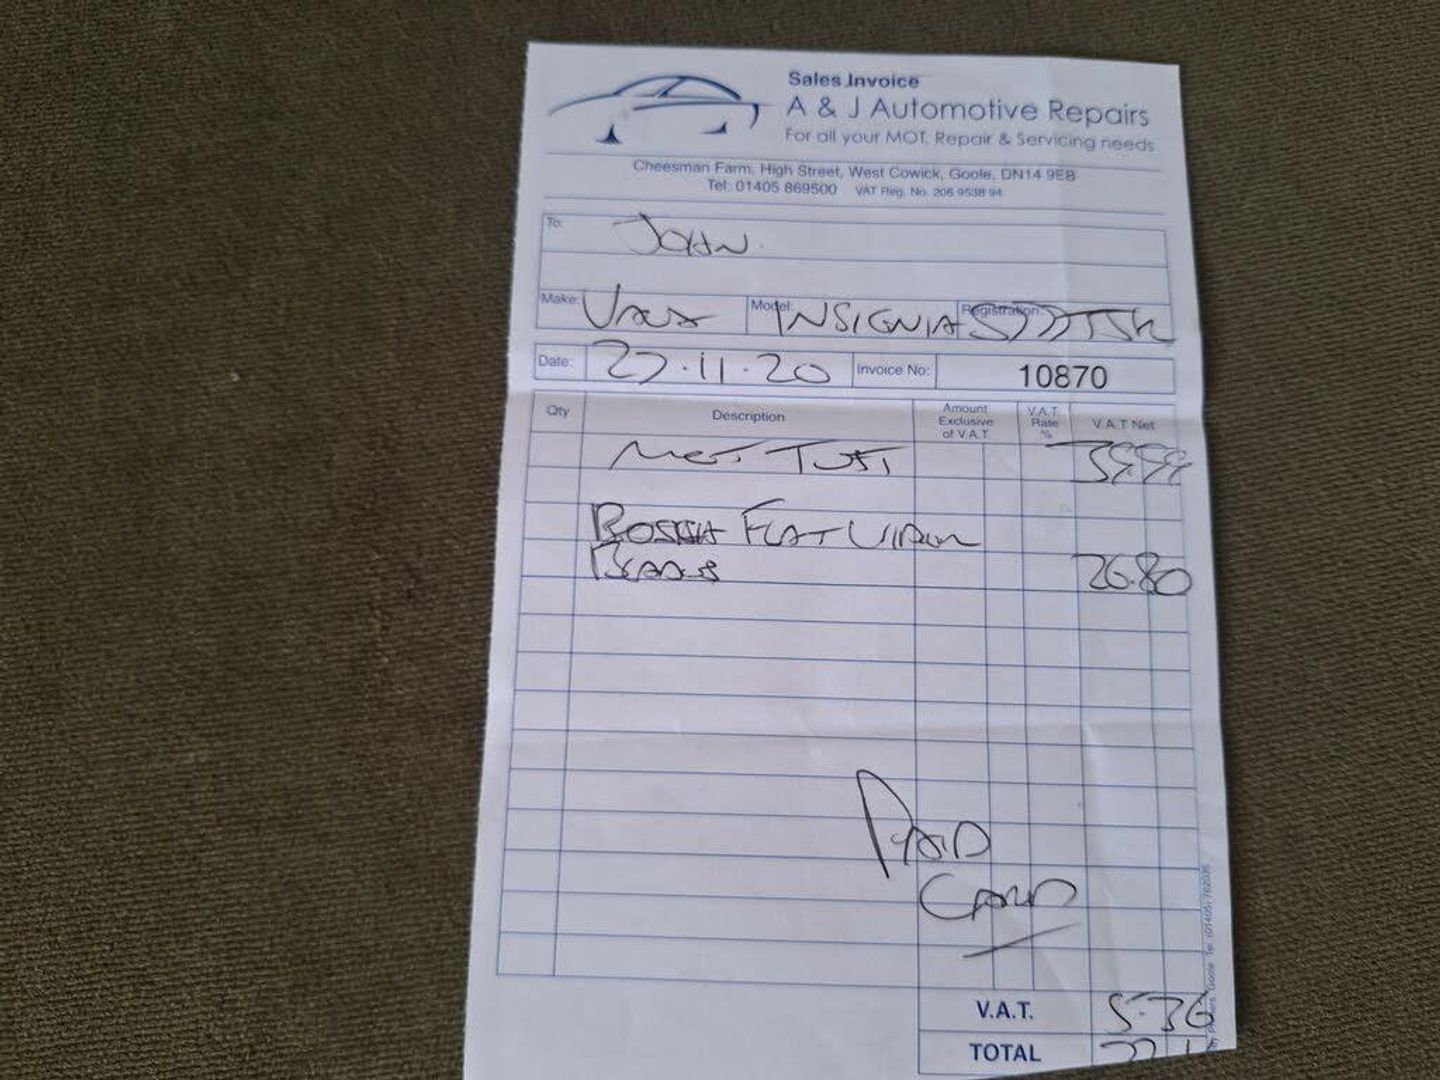 Sales Invoice
A & J Automotive Repairs
For all your MOT, Repair & Servicing needs
Cheesman Farm, High Street, West Cowick, Goole, DN14 9EB
Tel: 01405 869500 VAT Reg. No. 206 9538 94
To: JOHN.
Make: Model: INSIGNIA Registration:
Date: 27.11.20 Invoice No: 10870
Qty Description Amount Exclusive of V.A.T. V.A.T. Rate % V.A.T Net
MOT TEST 39.99
BOSCH FLAT
BLADES 26.80
PAID
CARD
V.A.T. 5.36
TOTAL
Goole Tel (01405)